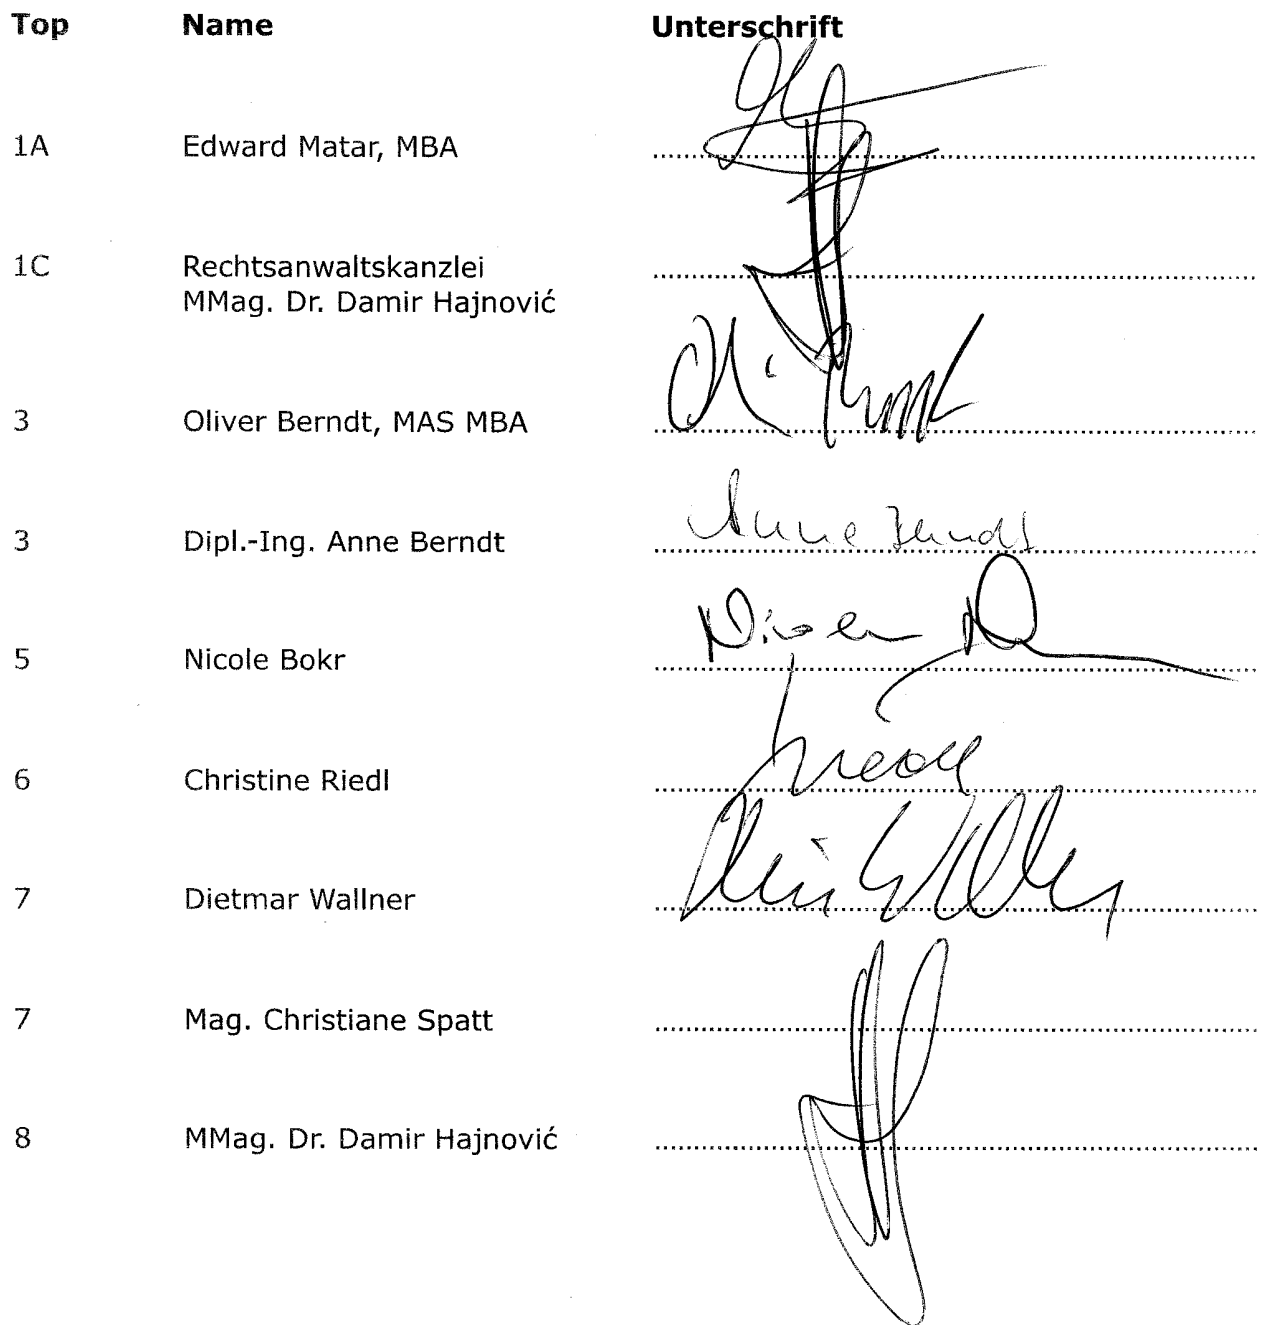 Top Name Unterschrift
1A Edward Matar, MBA
1C Rechtsanwaltskanzlei
MMag. Dr. Damir Hajnović
3 Oliver Berndt, MAS MBA
3 Dipl.-Ing. Anne Berndt
Anne Berndt
5 Nicole Bokr
6 Christine Riedl
7 Dietmar Wallner
7 Mag. Christiane Spatt
8 MMag. Dr. Damir Hajnović